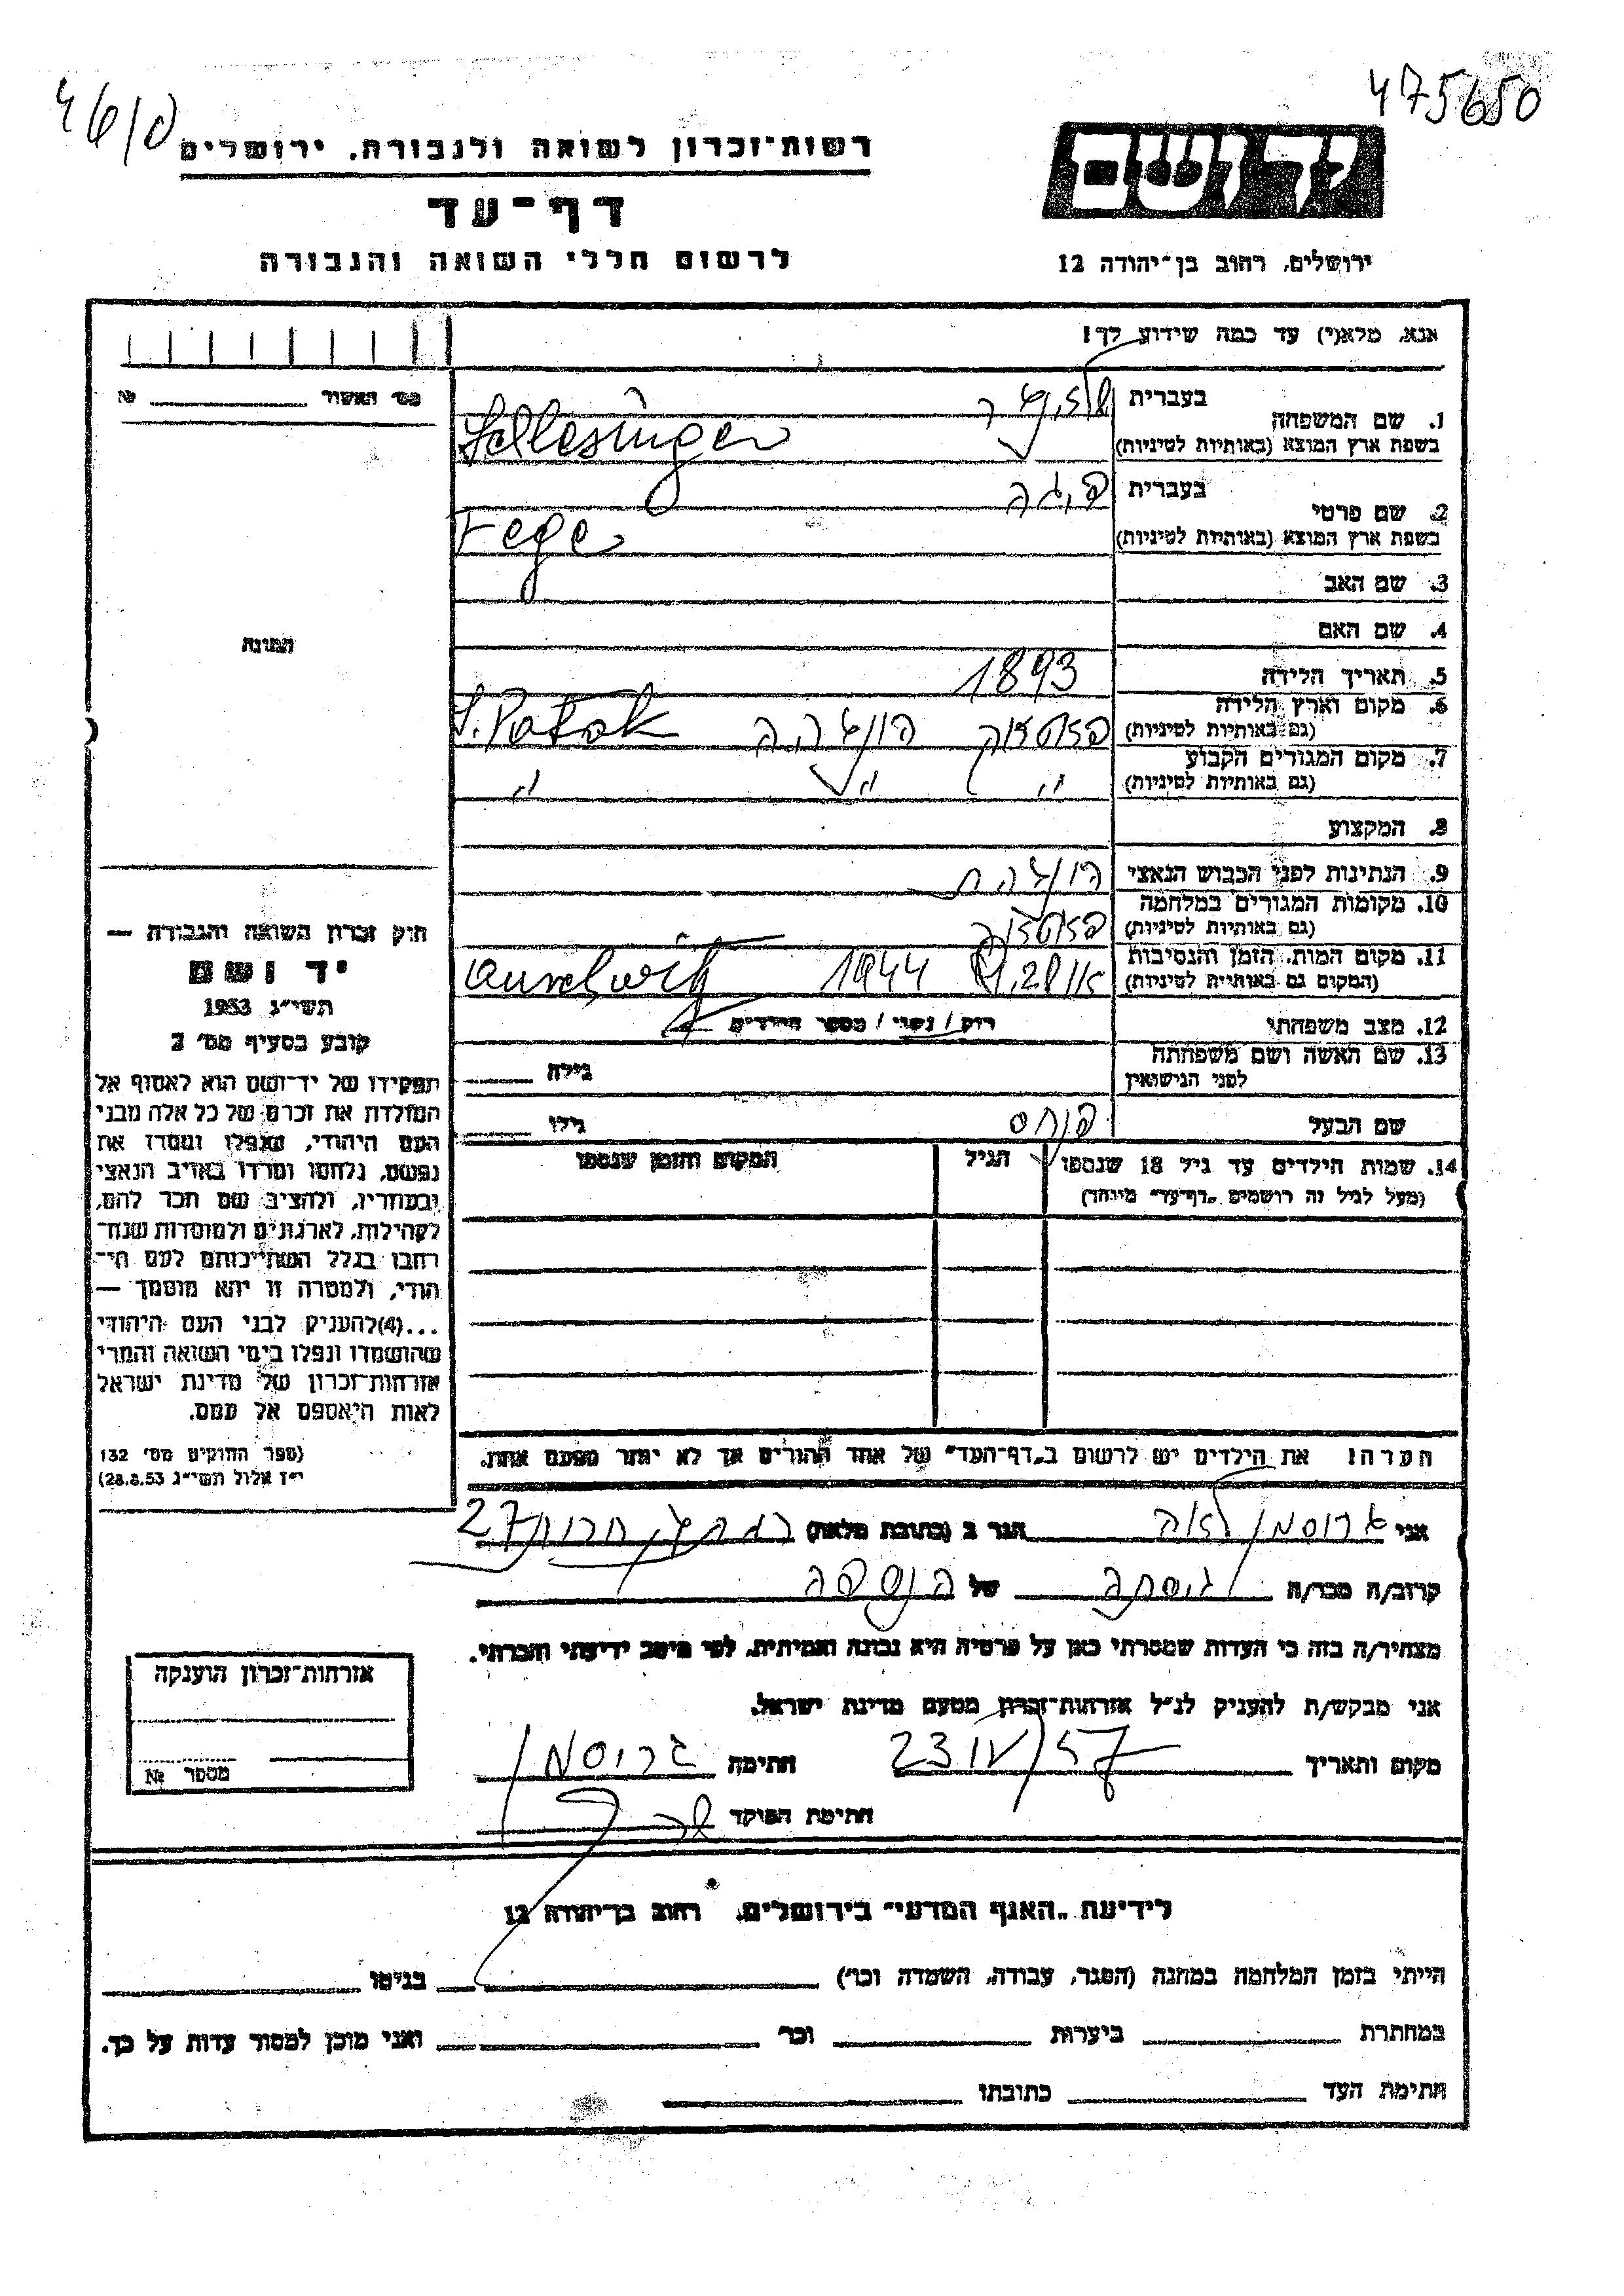 475650
רשות-זכרון לשואה ולגבורה, ירושלים
דף-עד
לרשום חללי השואה והגבורה
ידושם
ירושלים, רחוב בן-יהודה 12
אנא, מלא(י) עד כמה שידוע לך!
מס' האשור № 
1. שם המשפחה
בעברית שלזינגר
בשפת ארץ המוצא (באותיות לטיניות) Schlesinger
2. שם פרטי
בעברית פיגה
בשפת ארץ המוצא (באותיות לטיניות) Fege
3. שם האב
4. שם האם
5. תאריך הלידה 1893
6. מקום וארץ הלידה (גם באותיות לטיניות) פאטאק הונגריה S. Patak
7. מקום המגורים הקבוע (גם באותיות לטיניות) " " "
8. המקצוע
9. הנתינות לפני הכבוש הנאצי הונגרית
10. מקומות המגורים במלחמה (גם באותיות לטיניות) פאטאק
11. מקום המות, הזמן והנסיבות (המקום גם באותיות לטיניות) 1944 Auschwitz
12. מצב משפחתי רוק / נשוי / מספר הילדים
13. שם האשה ושם משפחתה לפני הנישואין גילה
שם הבעל פנחס גילו
14. שמות הילדים עד גיל 18 שנספו
(מעל לגיל זה רושמים "דף-עד" מיוחד)
הגיל
המקום והזמן שנספו
הערה! את הילדים יש לרשום ב"דף-העד" של אחד ההורים אך לא יותר מפעם אחת.
התמונה
חוק זכרון השואה והגבורה —
יד ושם
תשי"ג 1953
קובע בסעיף מס' 2
תפקידו של יד-ושם הוא לאסוף אל
המולדת את זכרם של כל אלה מבני
העם היהודי, שנפלו ומסרו את
נפשם, נלחמו ומרדו באויב הנאצי
ובעוזריו, ולהציב שם וזכר להם,
לקהילות, לארגונים ולמוסדות שנח-
רבו בגלל השתייכותם לעם הי-
הודי, ולמטרה זו יהא מוסמך —
...(4)להעניק לבני העם היהודי
שהושמדו ונפלו בימי השואה והמרי
אזרחות-זכרון של מדינת ישראל
לאות היאספם אל עמם.
(ספר החוקים מס' 132
י"ז אלול תשי"ג 28.8.53)
אני גרוסמן לאה הגר ב (כתובת מלאה) רמת גן, חרות 27
קרוב/ה מכר/ה גיסתה של הנספה
מצהיר/ה בזה כי העדות שמסרתי כאן על פרטיה היא נכונה ואמיתית, לפי מיטב ידיעתי והכרתי.
אני מבקש/ת להעניק לנ"ל אזרחות-זכרון מטעם מדינת ישראל.
מקום ותאריך 23 IV 57 חתימה גרוסמן
חתימת הפוקד
אזרחות-זכרון הוענקה
מספר №
לידיעת "האגף המדעי" בירושלים, רחוב בן-יהודה 12
הייתי בזמן המלחמה במחנה (הסגר, עבודה, השמדה וכו') בגיטו
במחתרת ביערות וכו' ואני מוכן למסור עדות על כך.
חתימת העד כתובתו